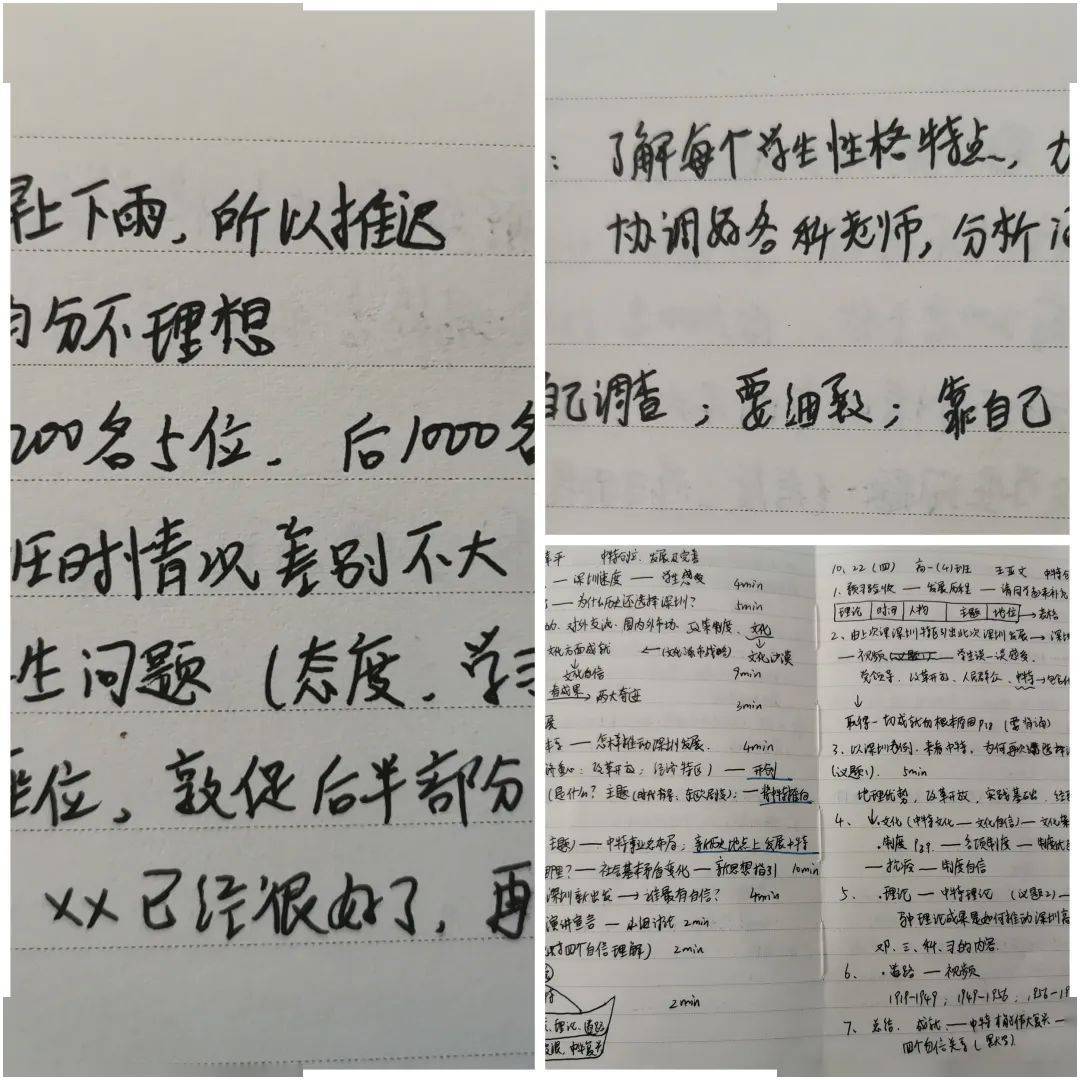 早上下雨，所以推迟
均分不理想
200名5位．后1000名
任时情况差别不大
生问题（态度．学习
座位，敦促后半部分
xx已经很好了，再
：了解每个学生性格特点，
协调好各科老师，分析
自己调查；要细致；靠自己
中特创立、发展及完善
— 深圳速度 — 学生感受 4min
— 为什么历史还选择深圳？ 5min
对外交流、国内外市场、改革制度、文化
文化方面成就 ← (文化流市战略) 文化沙漠
文化自信 9min
看成果 → 两大奇迹 3min
展
— 怎样推动深圳发展． 4min
改革开放；经济特区）— 开创
(是什么？主题
主题）— 中特事业总布局；新历史地点上发展中特
— 社会基本矛盾变化 — 新思想指引 10min
深圳新出发 → 谁最有自信？ 4min
演讲宣言 — 小组讨论 2min
对四个自信理解） 2min
2min
理论、道路
10、22（四） 高一（4）班 王亚文
1、预习验收 — 发展历程 —
理论 时间 人物 主题 地位
2、由上次课深圳特区引出此次深圳发展 →
— 视频 — 学生谈一谈感受．
党领导、改革开放、人民群众、中特
取得一切成就的根本原因P18（要背诵）
3、以深圳为例．来看中特，为何再次选择
(议题1)． 5min
地理优势，改革开放，实践基础，
4、文化（中特文化 — 文化自信）—
．制度 P29 — 各项制度 —
— 抗疫 — 制度自信
5、．理论 — 中特理论（议题2）—
理论成果是如何推动深圳
邓、三、科、习的内容．
6、．道路 — 视频
1919-1949；1949-1956；1956-
7、总结．成就 —
四个自信关系（默写）